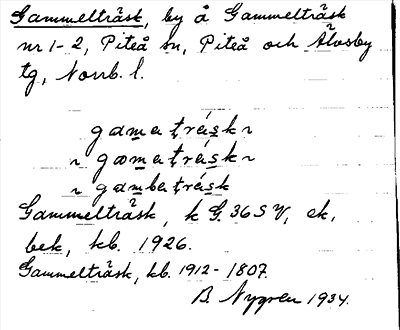 Gammelträsk, by å Gammelträsk
nr 1-2, Piteå sn, Piteå och Älvsby
tg, Norrb. l.
gamatrásk ~
~ gamatrásk ~
~ gambatrásk
Gammelträsk, k G. 36 S V, ek,
bek, kb. 1926.
Gammelträsk, kb. 1912-1807.
B. Nygren 1934.